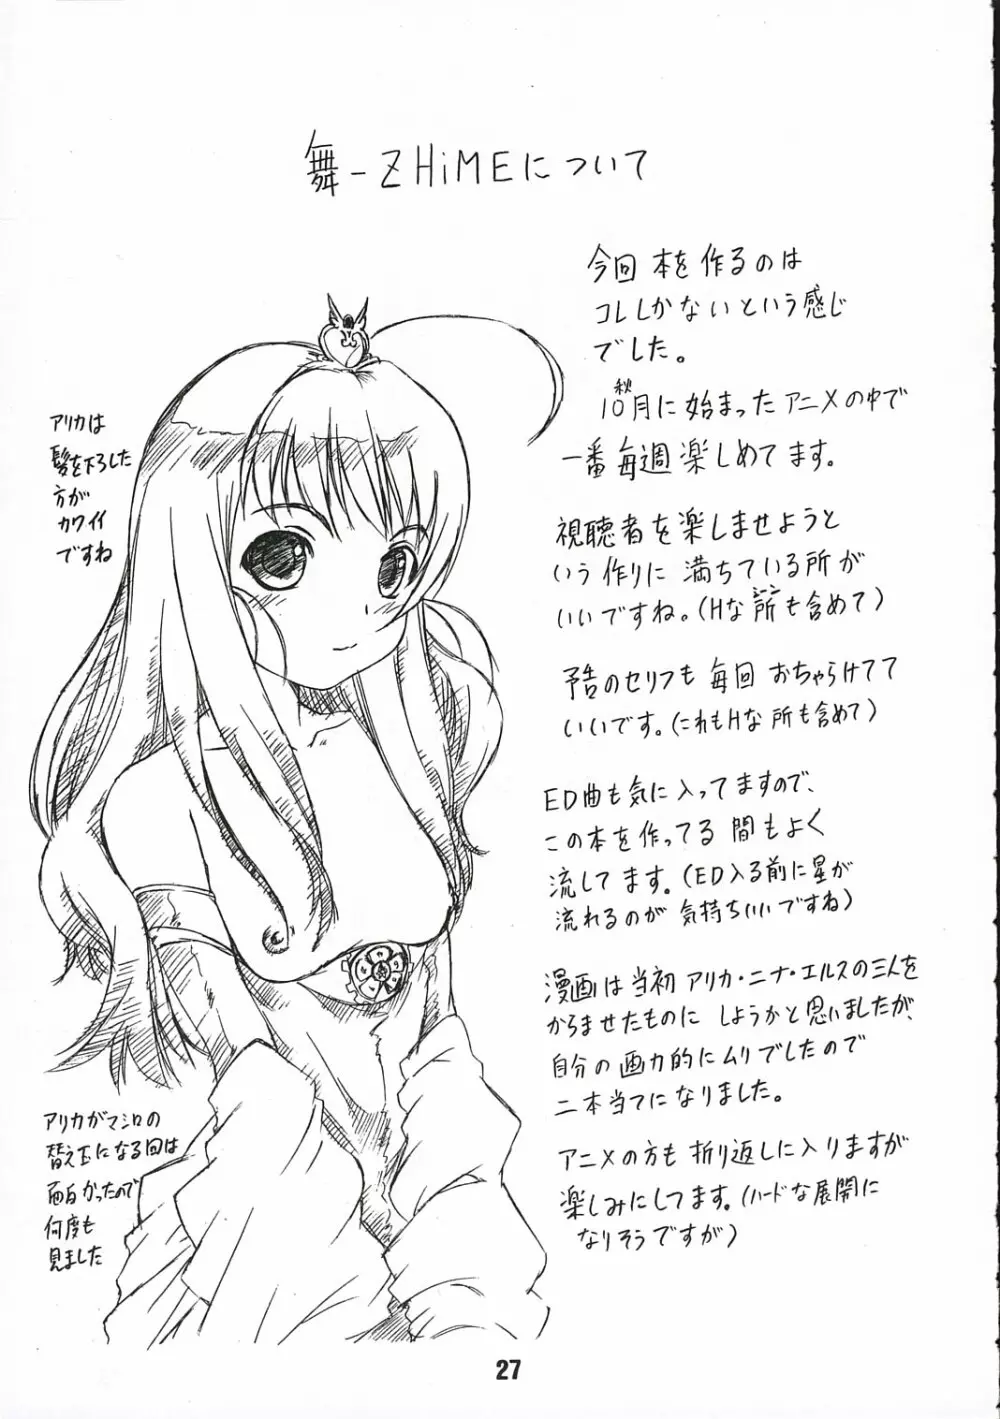 舞-ZHiMEについて
今回 本を作るのは
コレしかないという感じ
でした。
秋
10月に始まったアニメの中で
一番毎週楽しめてます。
視聴者を楽しませようと
いう作りに 満ちている所が
いいですね。(Hな所も含めて)
予告のセリフも 毎回 おちゃらけてて
いいです。(これもHな所も含めて)
ED曲も気に入ってますので、
この本を作ってる 間もよく
流してます。(ED入る前に星が
流れるのが 気持ちいいですね)
漫画は当初 アリカ・ニナ・エルスの三人を
からませたものに しようかと思いましたが、
自分の画力的にムリでしたので
二本当てになりました。
アニメの方も 折り返しに入りますが
楽しみにしてます。(ハードな展開に
なりそうですが)
アリカは
髪を下ろした
方が
カワイイ
ですね
アリカがマシロの
替え玉になる回は
面白かったので
何度も
見ました
27